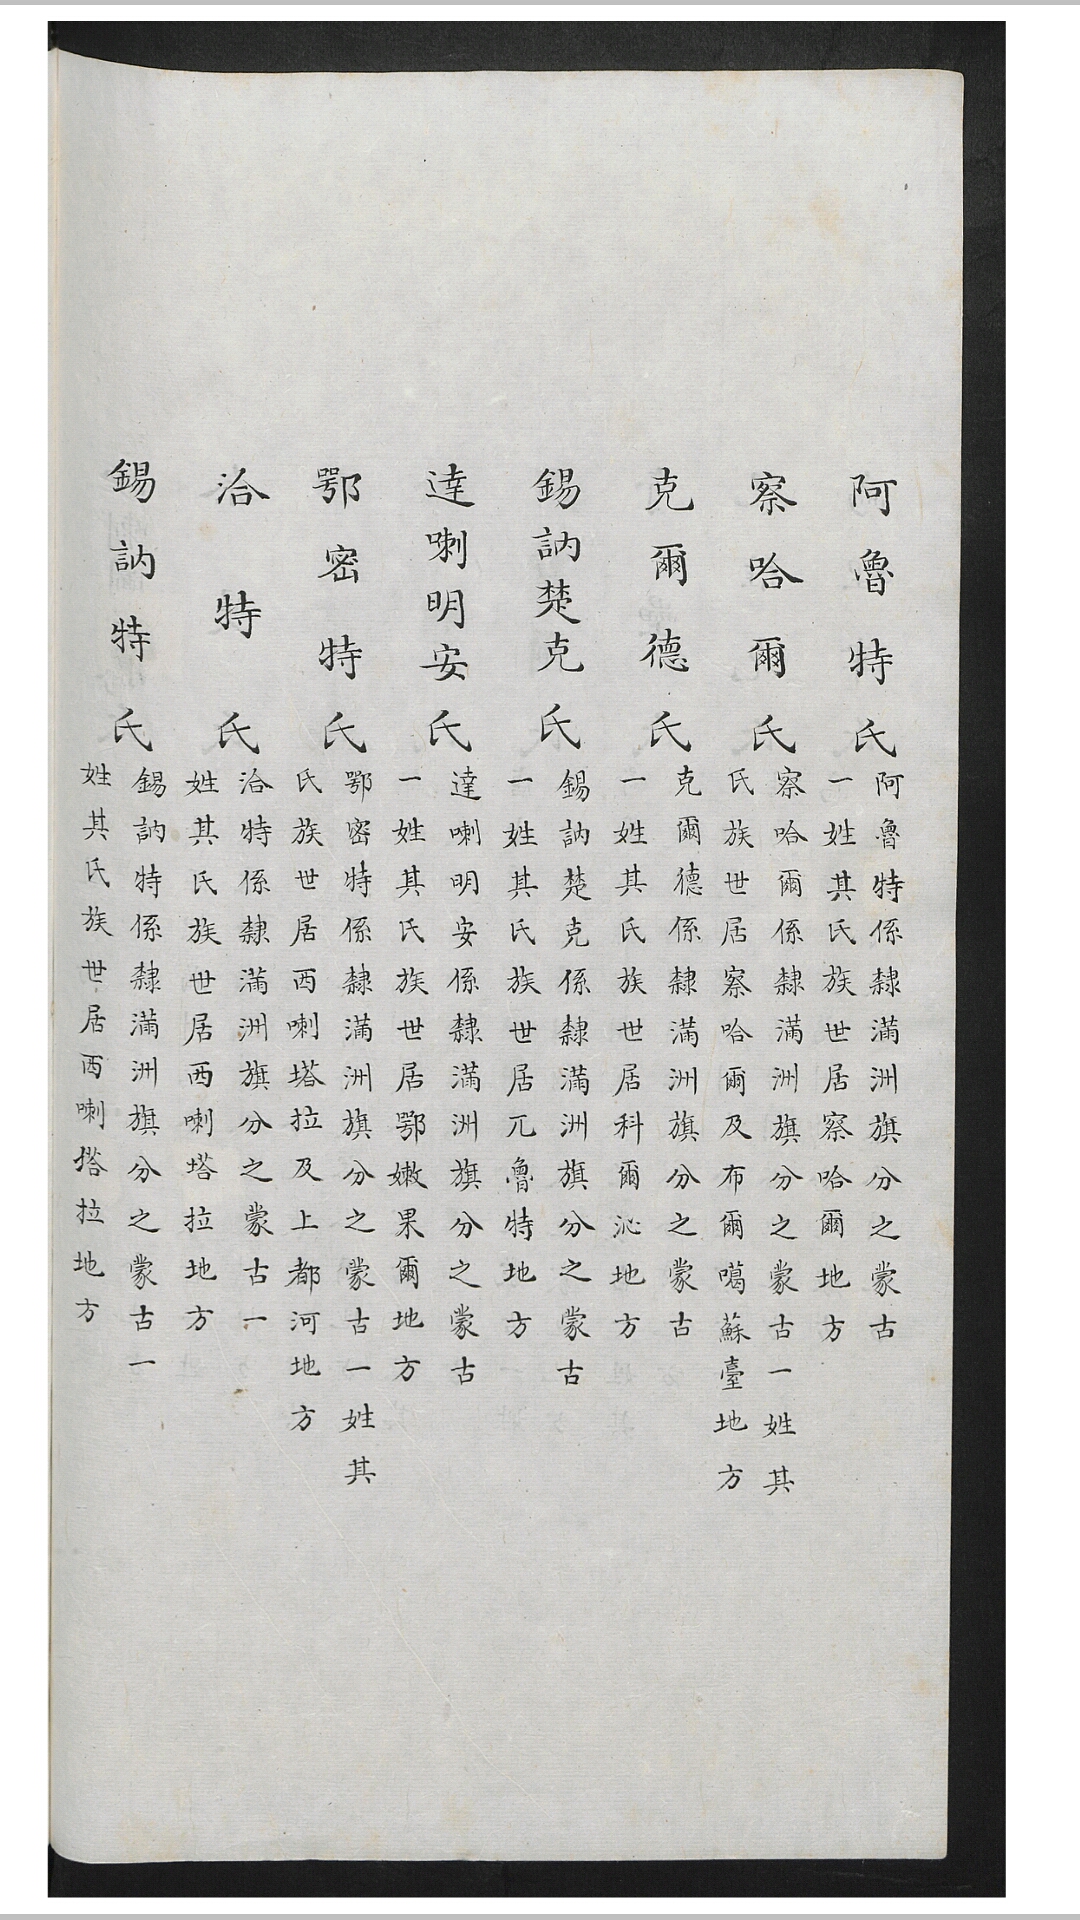 阿魯特氏
阿魯特係隸滿洲旗分之蒙古
一姓其氏族世居察哈爾地方
察哈爾氏
察哈爾係隸滿洲旗分之蒙古一姓其
氏族世居察哈爾及布爾噶蘇臺地方
克爾德氏
克爾德係隸滿洲旗分之蒙古
一姓其氏族世居科爾沁地方
錫訥楚克氏
錫訥楚克係隸滿洲旗分之蒙古
一姓其氏族世居兀魯特地方
達喇明安氏
達喇明安係隸滿洲旗分之蒙古
一姓其氏族世居鄂嫩果爾地方
鄂密特氏
鄂密特係隸滿洲旗分之蒙古一姓其
氏族世居西喇塔拉及上都河地方
洽特氏
洽特係隸滿洲旗分之蒙古一
姓其氏族世居西喇塔拉地方
錫訥特氏
錫訥特係隸滿洲旗分之蒙古一
姓其氏族世居西喇塔拉地方